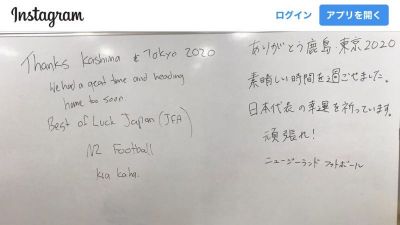 Instagram
ログイン
アプリを開く
Thanks Kashima & Tokyo 2020
We had a great time and heading
home to soon
Best of Luck Japan (JFA)
NZ Football
Kia kaha.
ありがとう鹿島 東京2020
素晴しい時間を過ごせました。
日本代表の幸運を祈っています。
頑張れ!
ニュージーランド フットボール